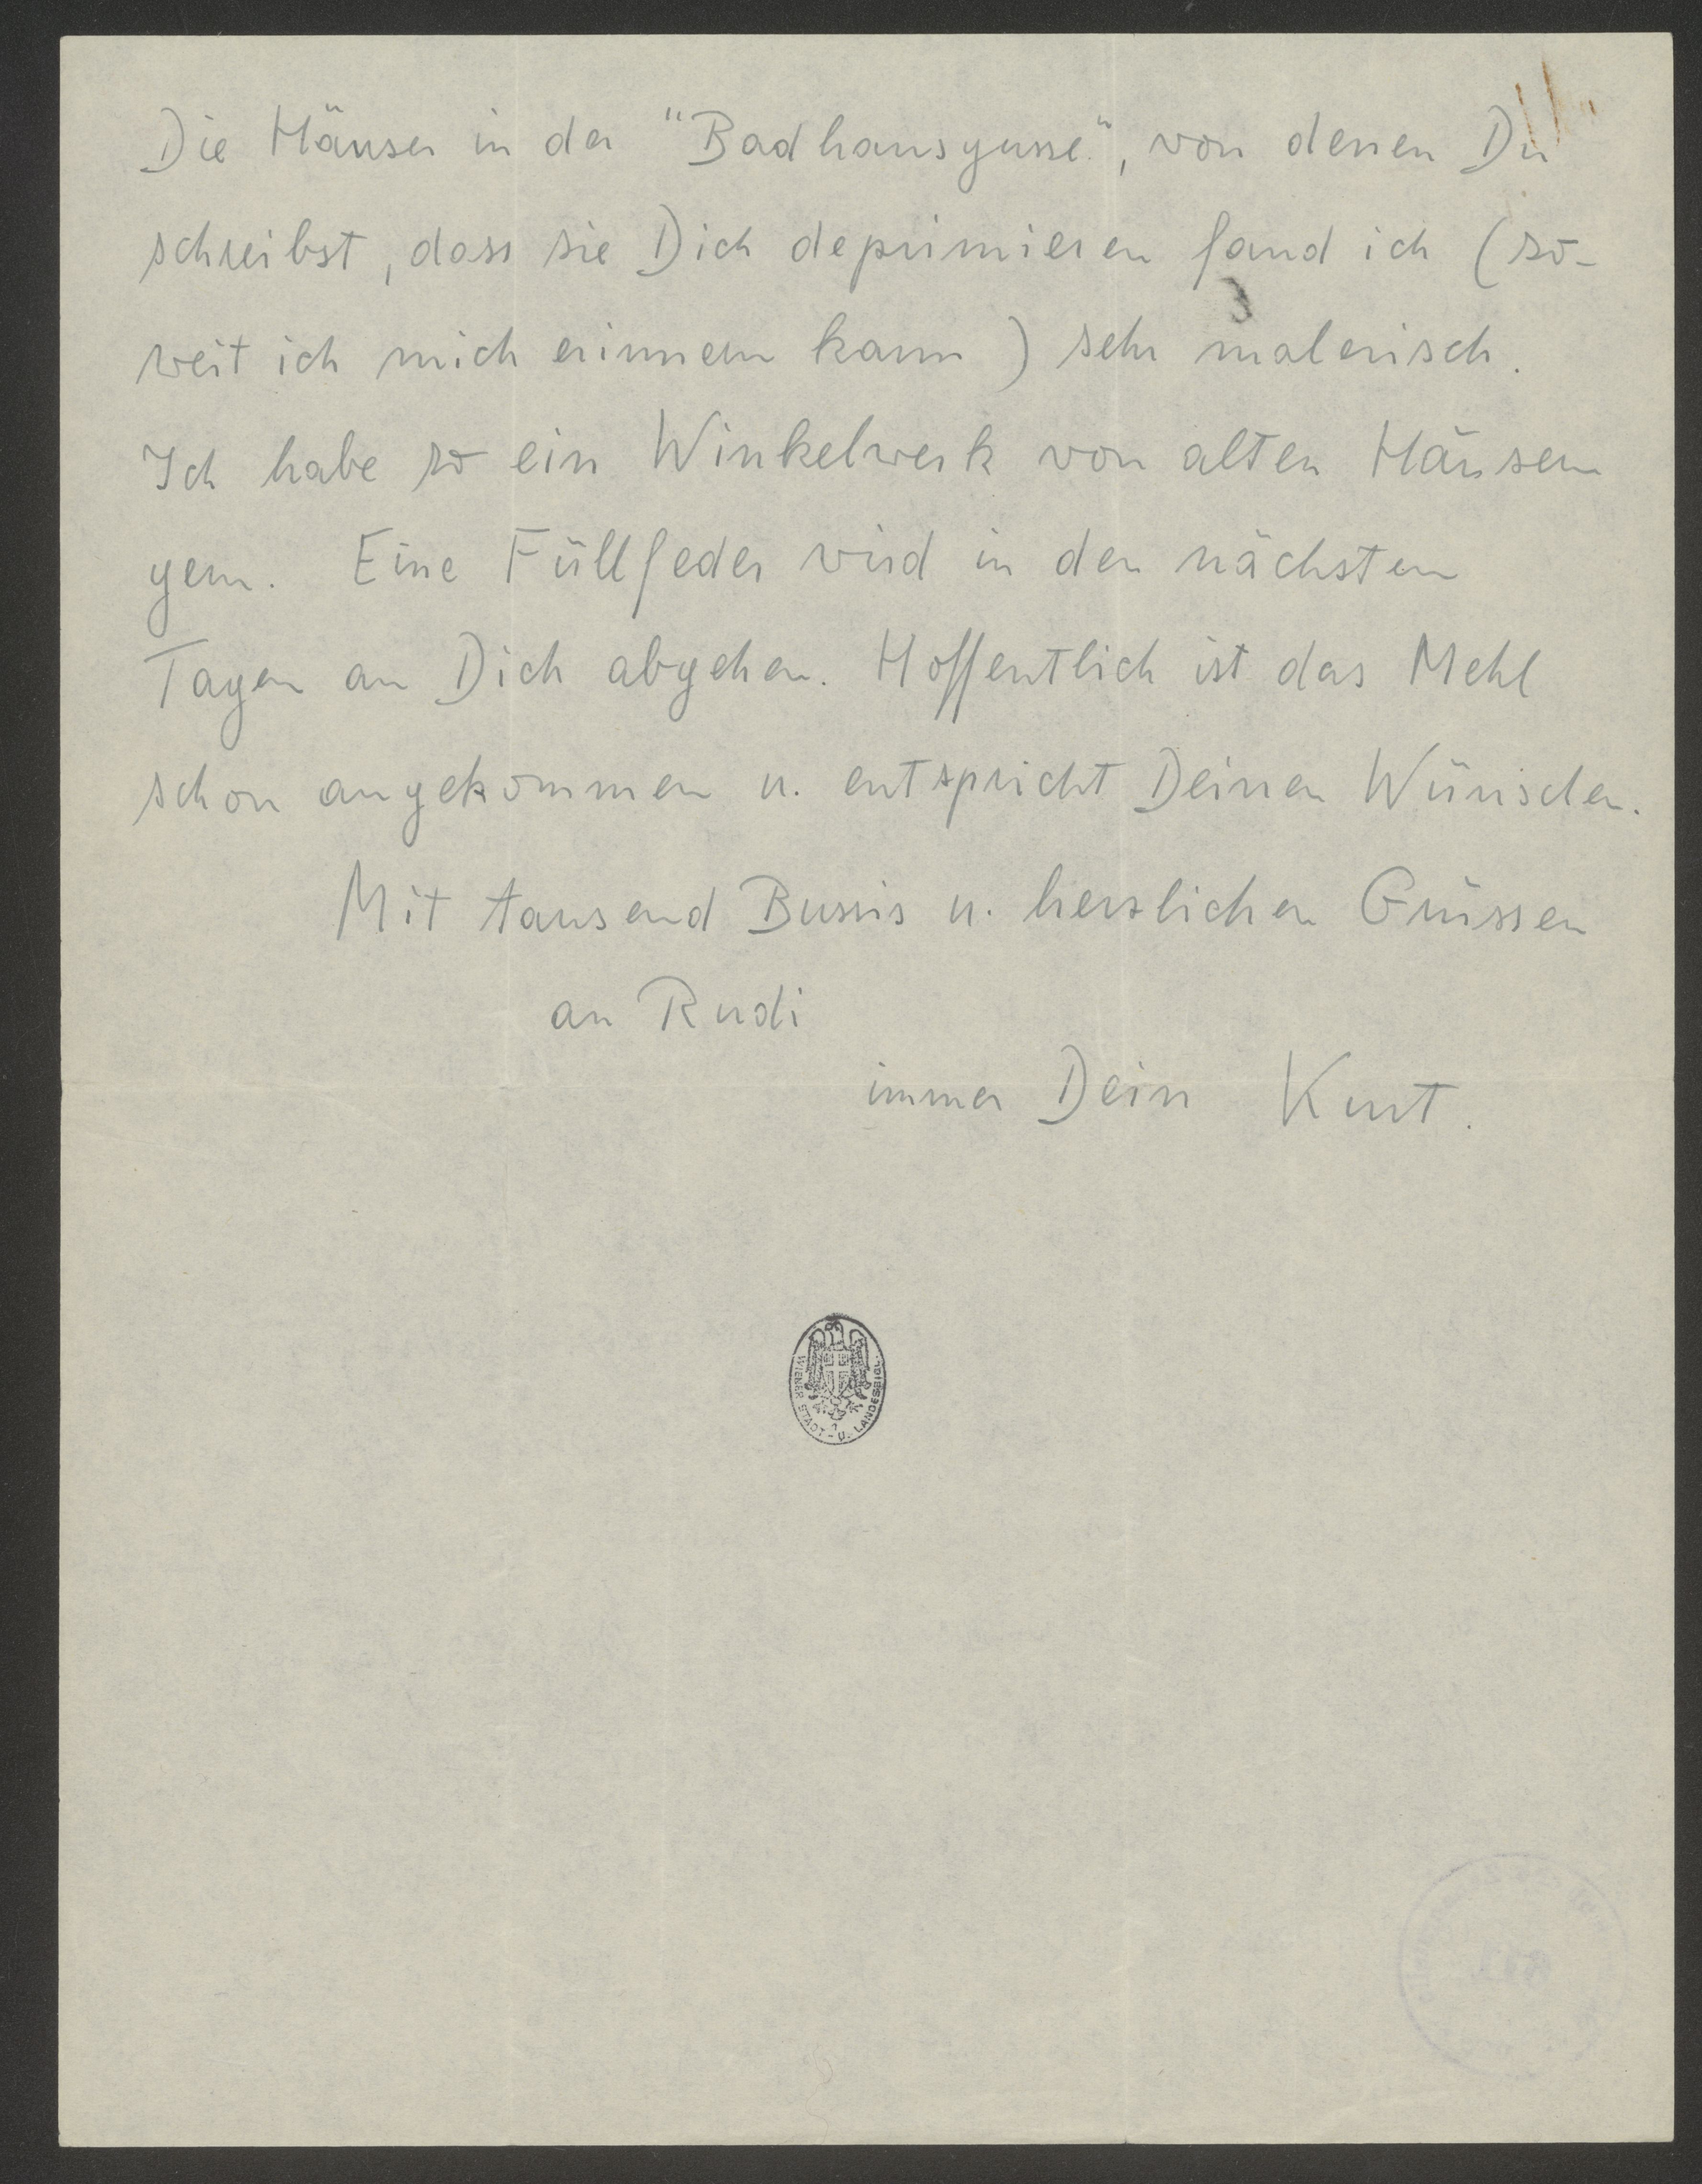 Die Häuser in der "Badhausgasse", von denen Du
schreibst, dass sie Dich deprimieren fand ich (so-
weit ich mich erinnern kann) sehr malerisch.
Ich habe so ein Winkelwerk von alten Häusern
gern. Eine Füllfeder wird in den nächsten
Tagen an Dich abgehen. Hoffentlich ist das Mehl
schon angekommen u. entspricht Deinen Wünschen.
Mit tausend Bussis u. herzlichen Grüssen
an Rudi
immer Dein Kurt.
WIENER STADT-U. LANDESBIBL.